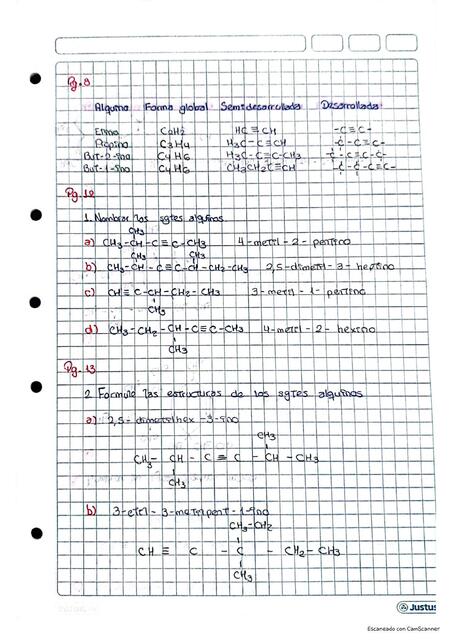 Pg. 9
Alquino Forma global Semidesarrollada Desarrollada
Etino C2H2 HC≡CH -C≡C-
Propino C3H4 H3C-C≡CH -C-C≡C-
But-2-ino C4H6 H3C-C≡C-CH3 -C-C≡C-C-
But-1-ino C4H6 CH3CH2C≡CH -C-C-C≡C-
Pg. 12
1. Nombrar los sgtes alquinos.
CH3
a) CH3-CH-C≡C-CH3 4-metil-2-pentino
CH3 CH3
b) CH3-CH-C≡C-CH-CH2-CH3 2,5-dimetil-3-heptino
c) CH≡C-CH-CH2-CH3 3-metil-1-pentino
CH3
d) CH3-CH2-CH-C≡C-CH3 4-metil-2-hexino
CH3
Pg. 13
2. Formule las estructuras de los sgtes alquinos
a) 2,5-dimetilhex-3-ino
CH3
CH3-CH-C≡C-CH-CH3
CH3
b) 3-etil-3-metilpent-1-ino
CH3-CH2
CH≡C-C-CH2-CH3
CH3
Justus
Escaneado con CamScanner